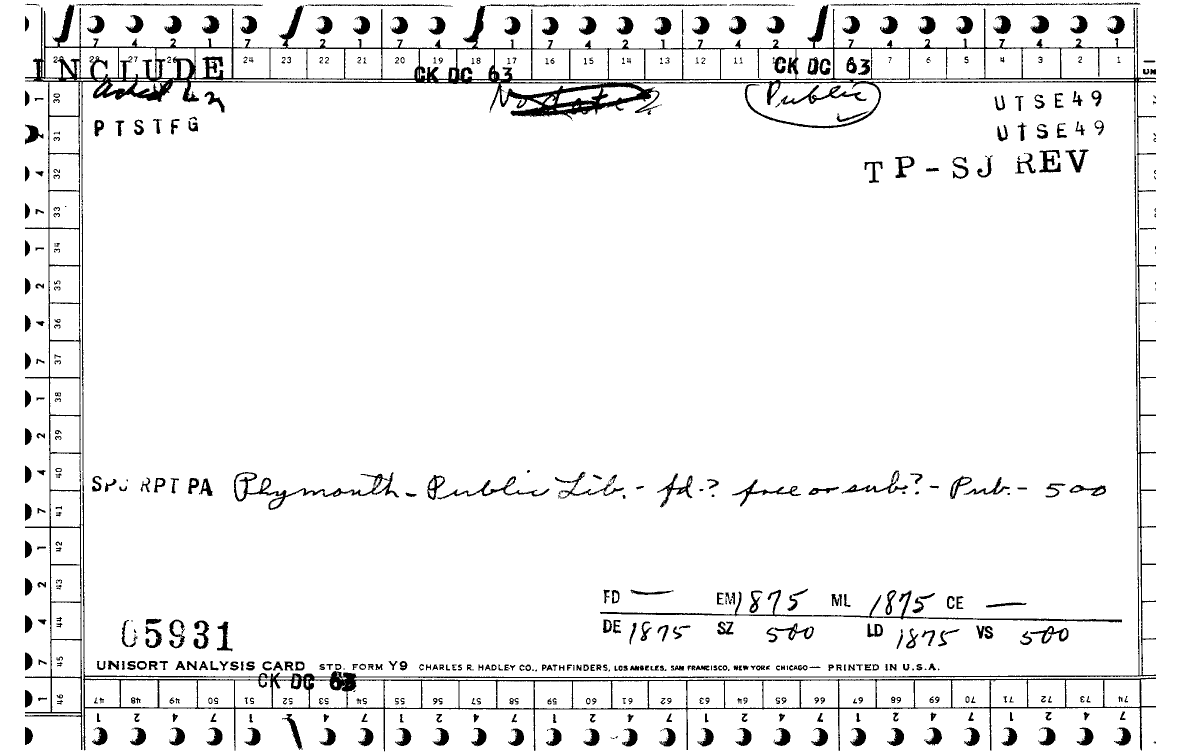 7 4 2 1 7 4 2 1 7 4 2 1 7 4 2 1 7 4 2 1 7 4 2 1 7 4 2 1
24 23 22 21 20 19 18 17 16 15 14 13 12 11 7 6 5 4 3 2 1
INCLUDE CK DC 63 CK DC 63
Public UTSE49
PTSTFG UTSE49
TP-SJ REV
1 30
31
4 32
7 33
1 34
2 35
4 36
7 37
1 38
2 39
4 40
SPJ RPT PA Plymouth - Public Lib. - fd.? free or sub.? - Pub. - 500
7 41
1 42
2 43
FD — EM 1875 ML 1875 CE —
4 44
DE 1875 SZ 500 LD 1875 VS 500
05931
7 45
UNISORT ANALYSIS CARD STD. FORM Y9 CHARLES R. HADLEY CO., PATHFINDERS, LOS ANGELES, SAN FRANCISCO, NEW YORK CHICAGO — PRINTED IN U.S.A.
CK DC 63
1 46
47 48 49 50 51 52 53 54 55 56 57 58 59 60 61 62 63 64 65 66 67 68 69 70 71 72 73 74
1 2 4 7 1 2 4 7 1 2 4 7 1 2 4 7 1 2 4 7 1 2 4 7 1 2 4 7